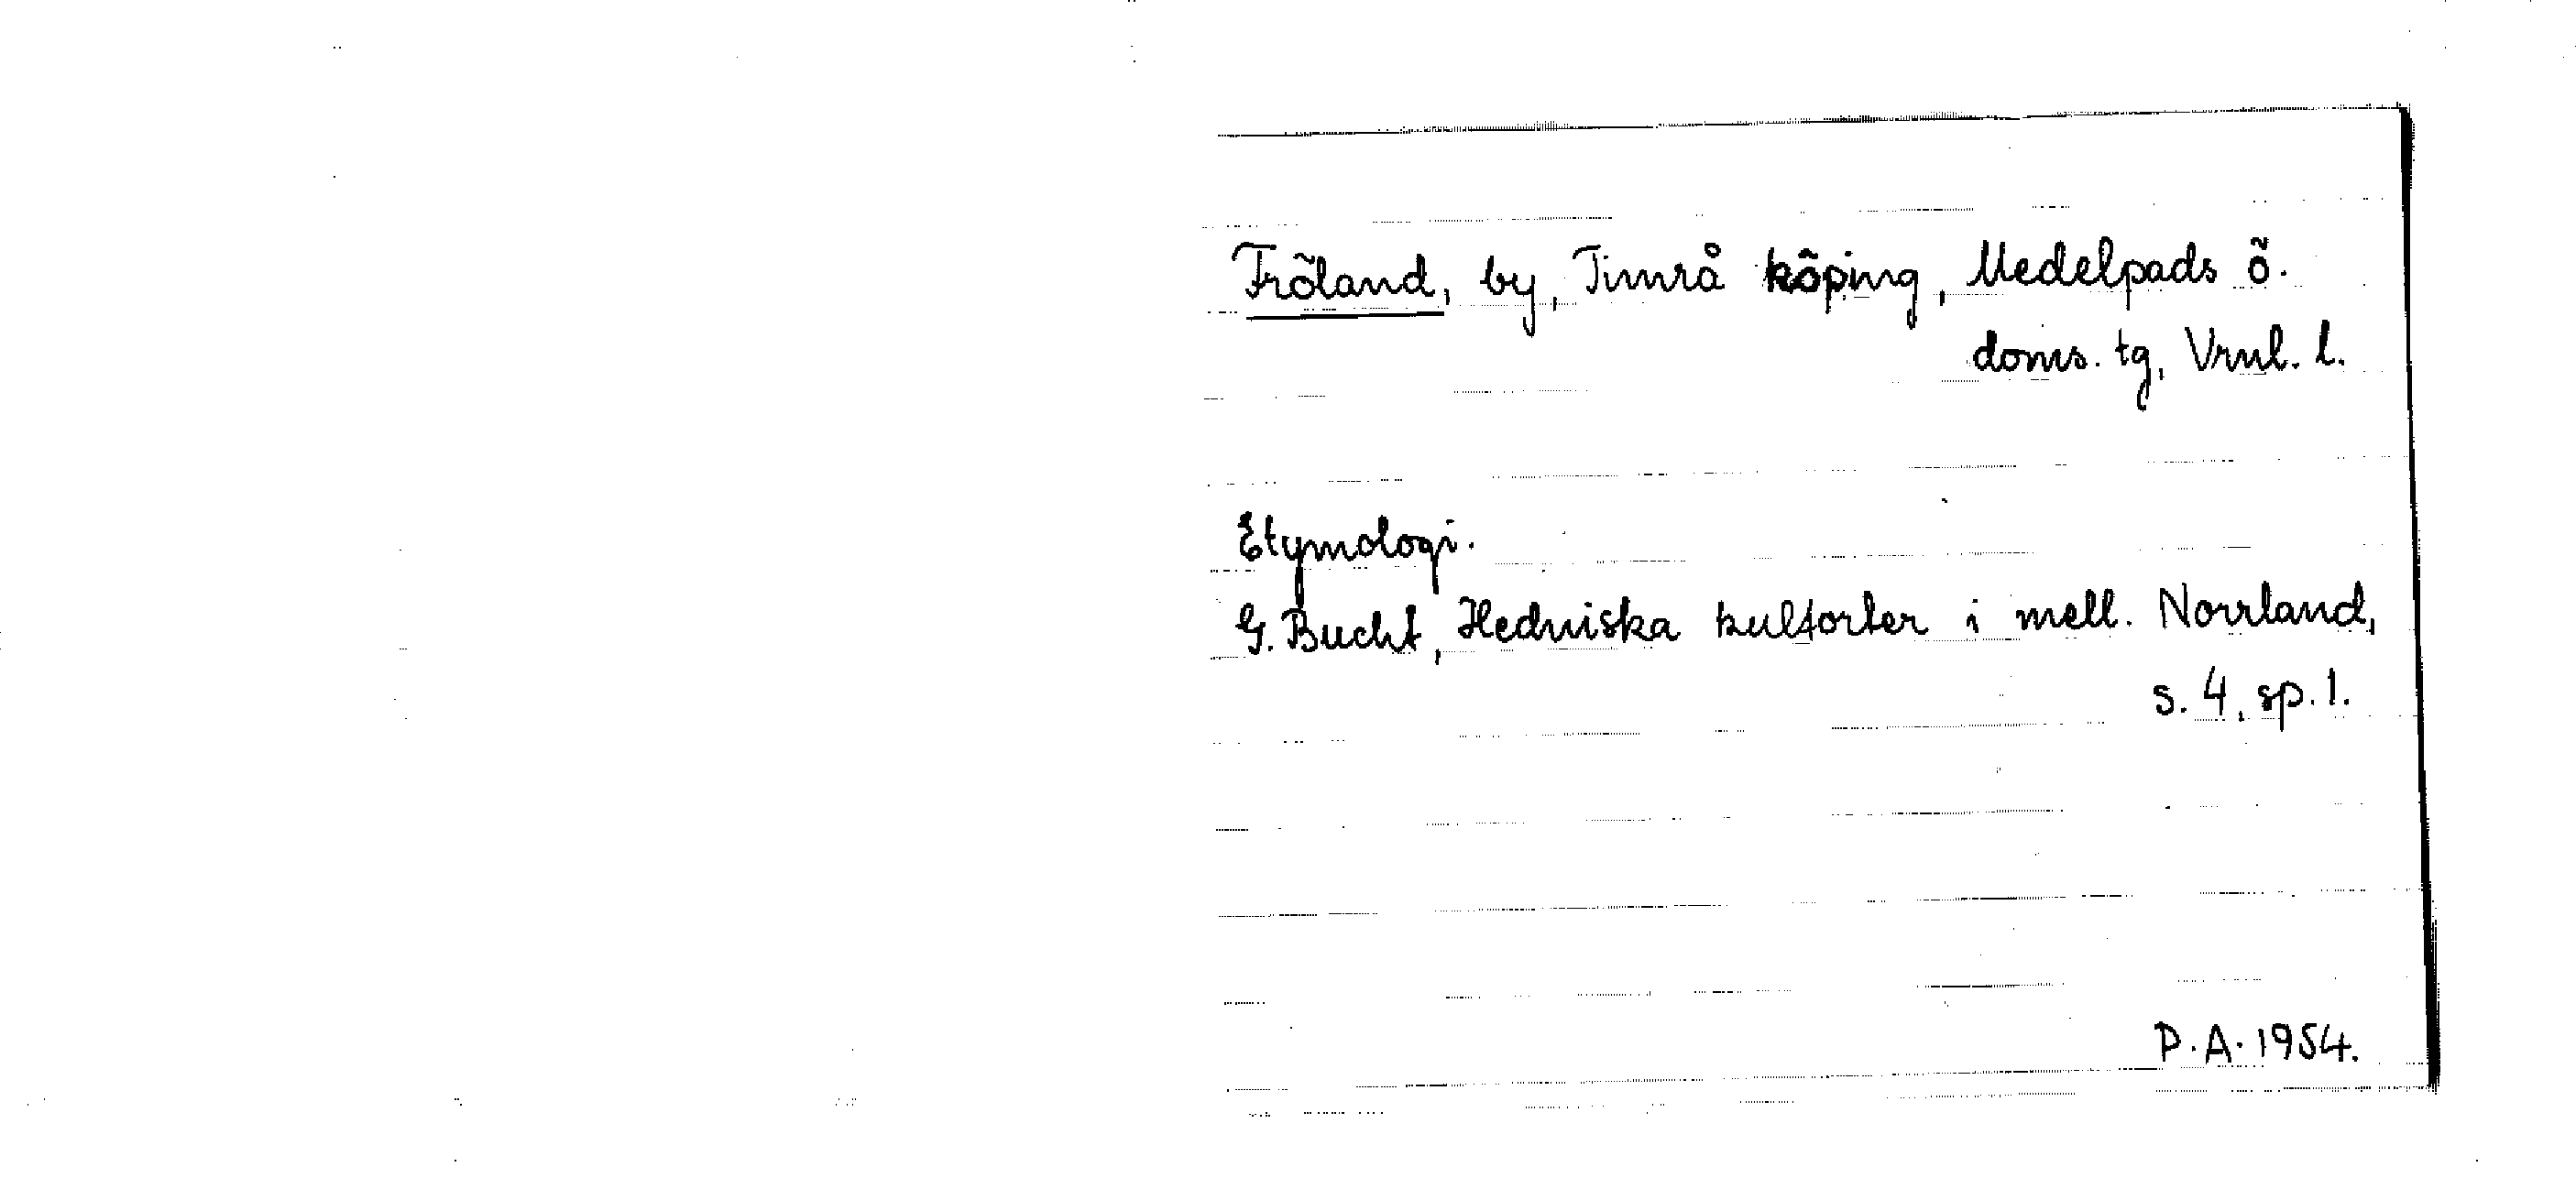 Fröland, by, Timrå köping, Medelpads ö.
doms. tg, Vrnl. l.
Etymologi.
G. Bucht, Hedniska kultorter i mell. Norrland,
s. 4, sp. 1.
P.A. 1954.